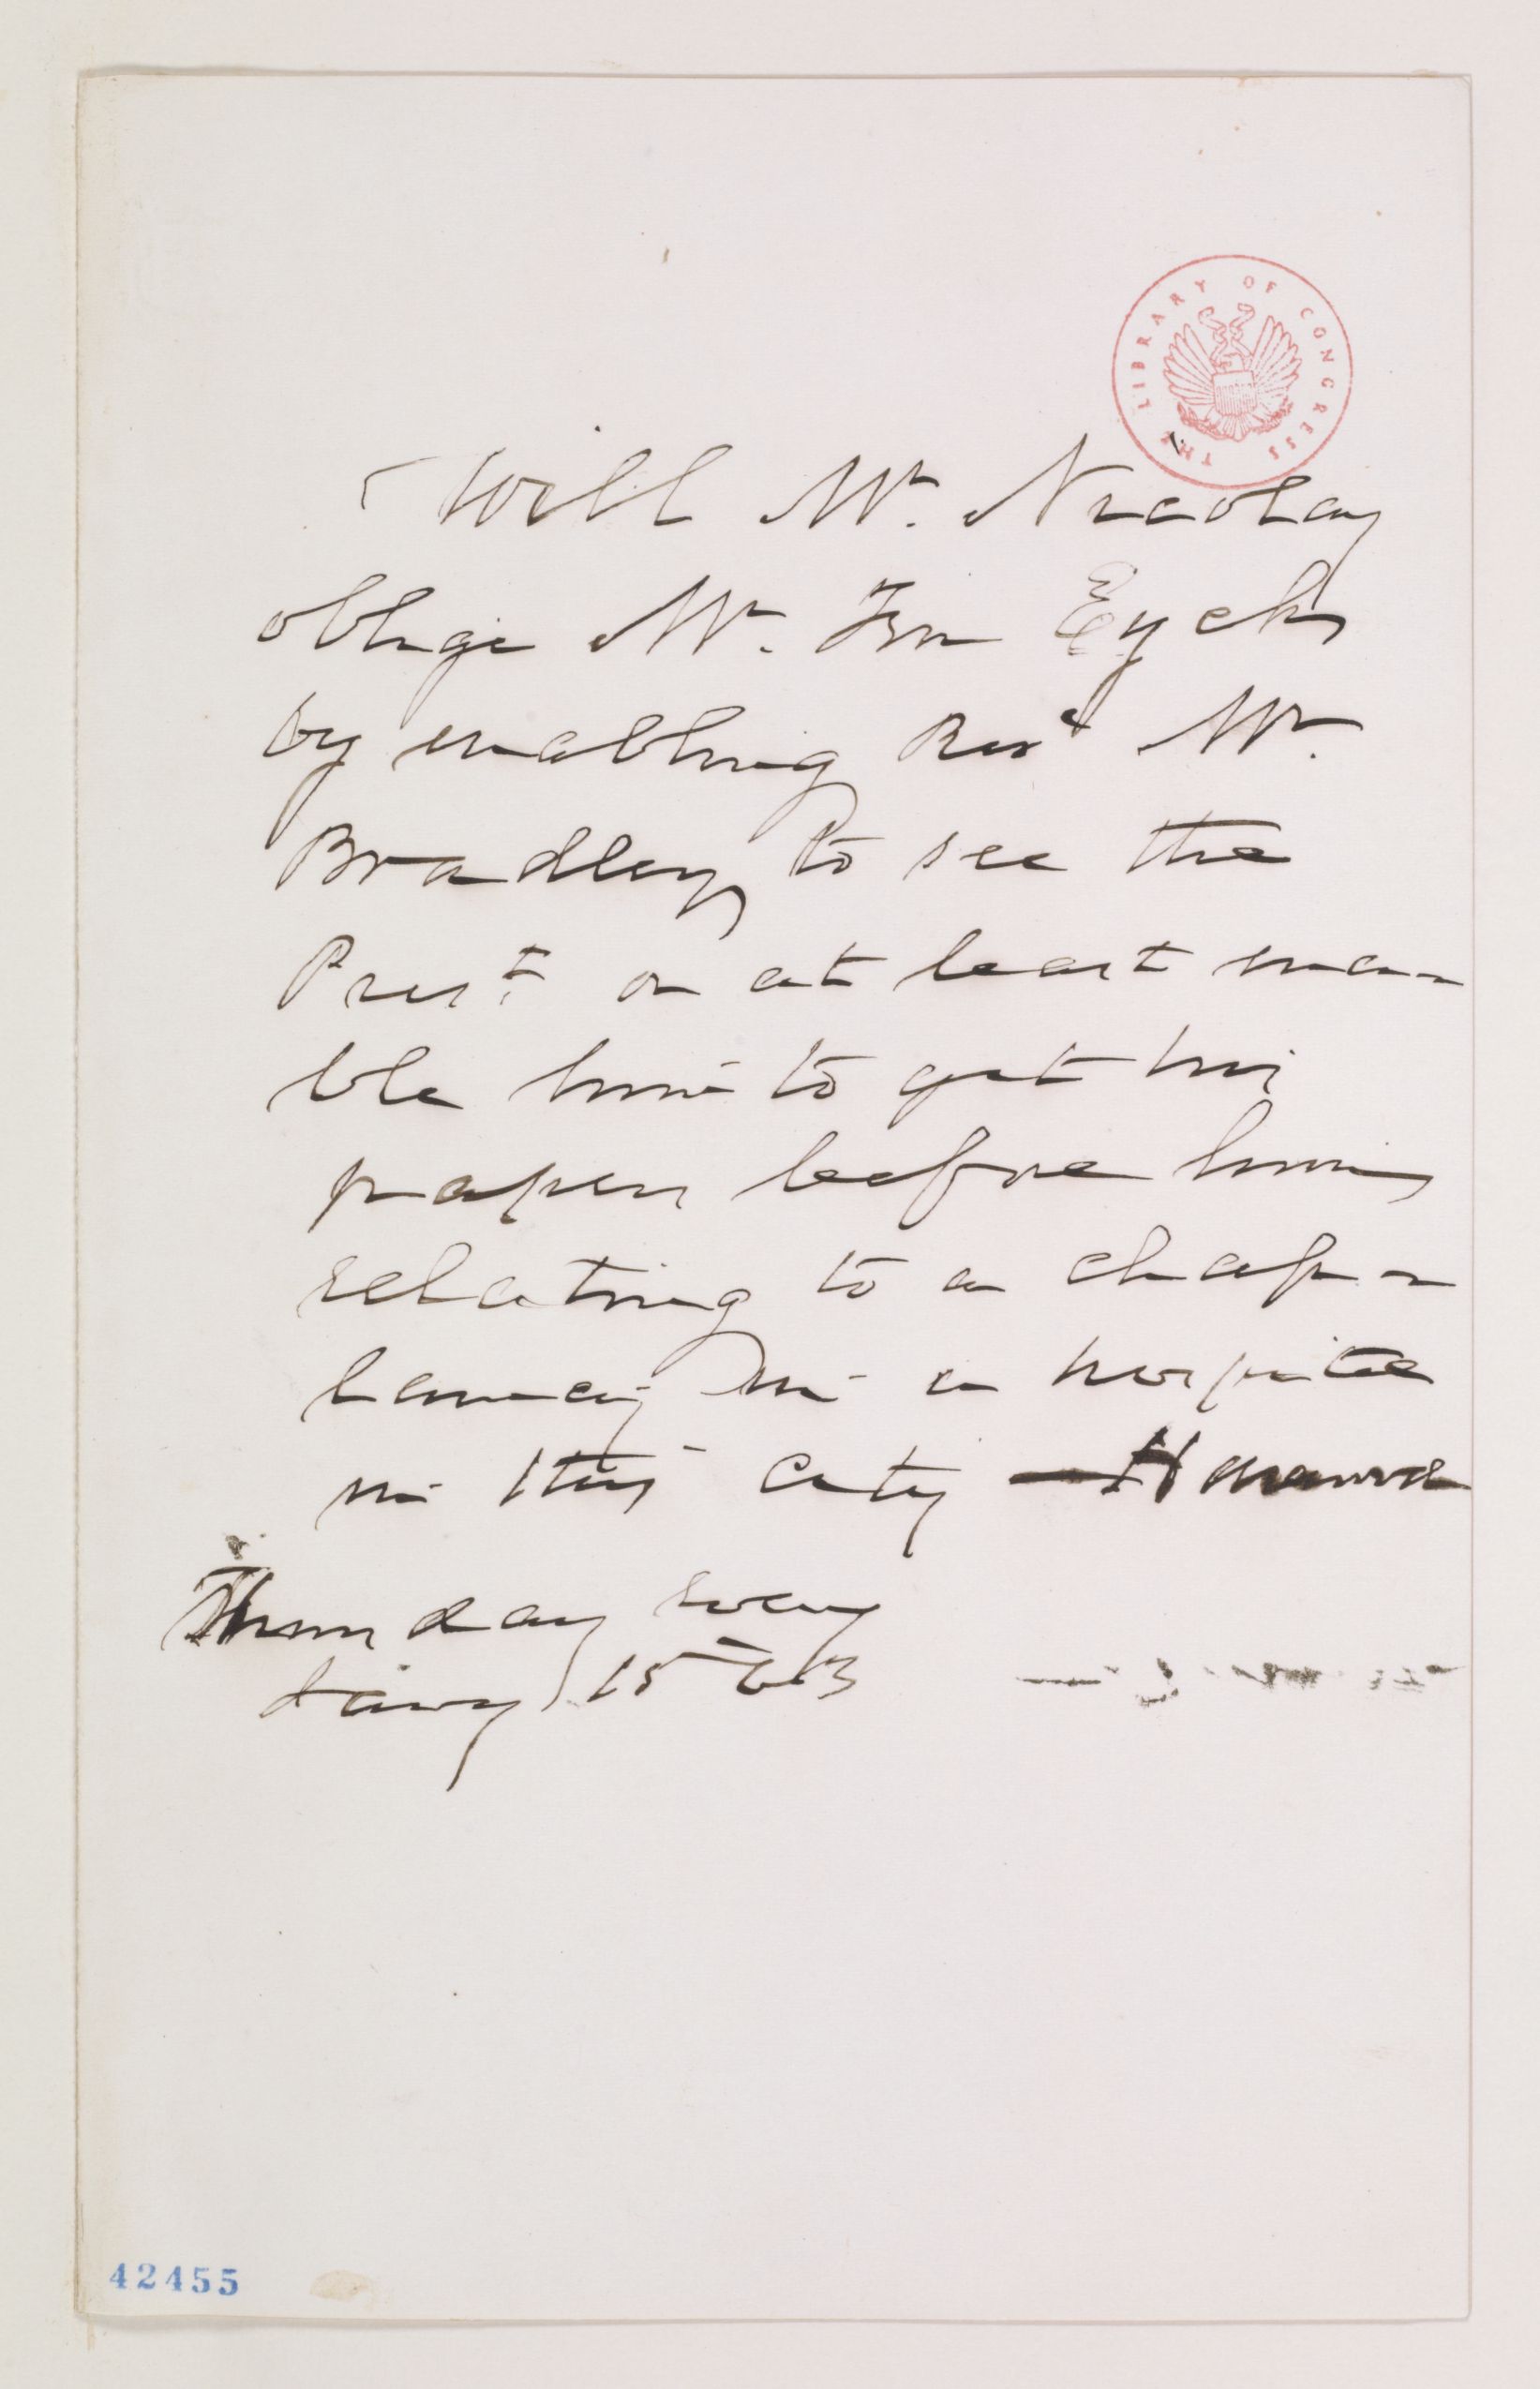 THE LIBRARY OF CONGRESS
Will Mr. Nicolay
oblige Mr. Ten Eyck
by enabling Revd Mr.
Bradley to see the
Prest. or at least ena-
ble him to get his
papers before him
relating to a chap-
laincy in a hospital
in this city —
Thursday Eveng
Jany 15 63
42455